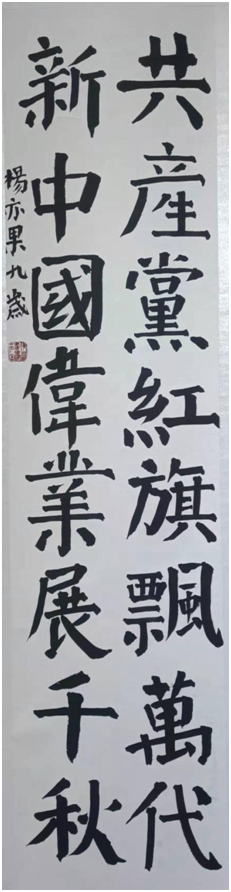 共產黨紅旗飄萬代
新中國偉業展千秋
楊亦果九歲